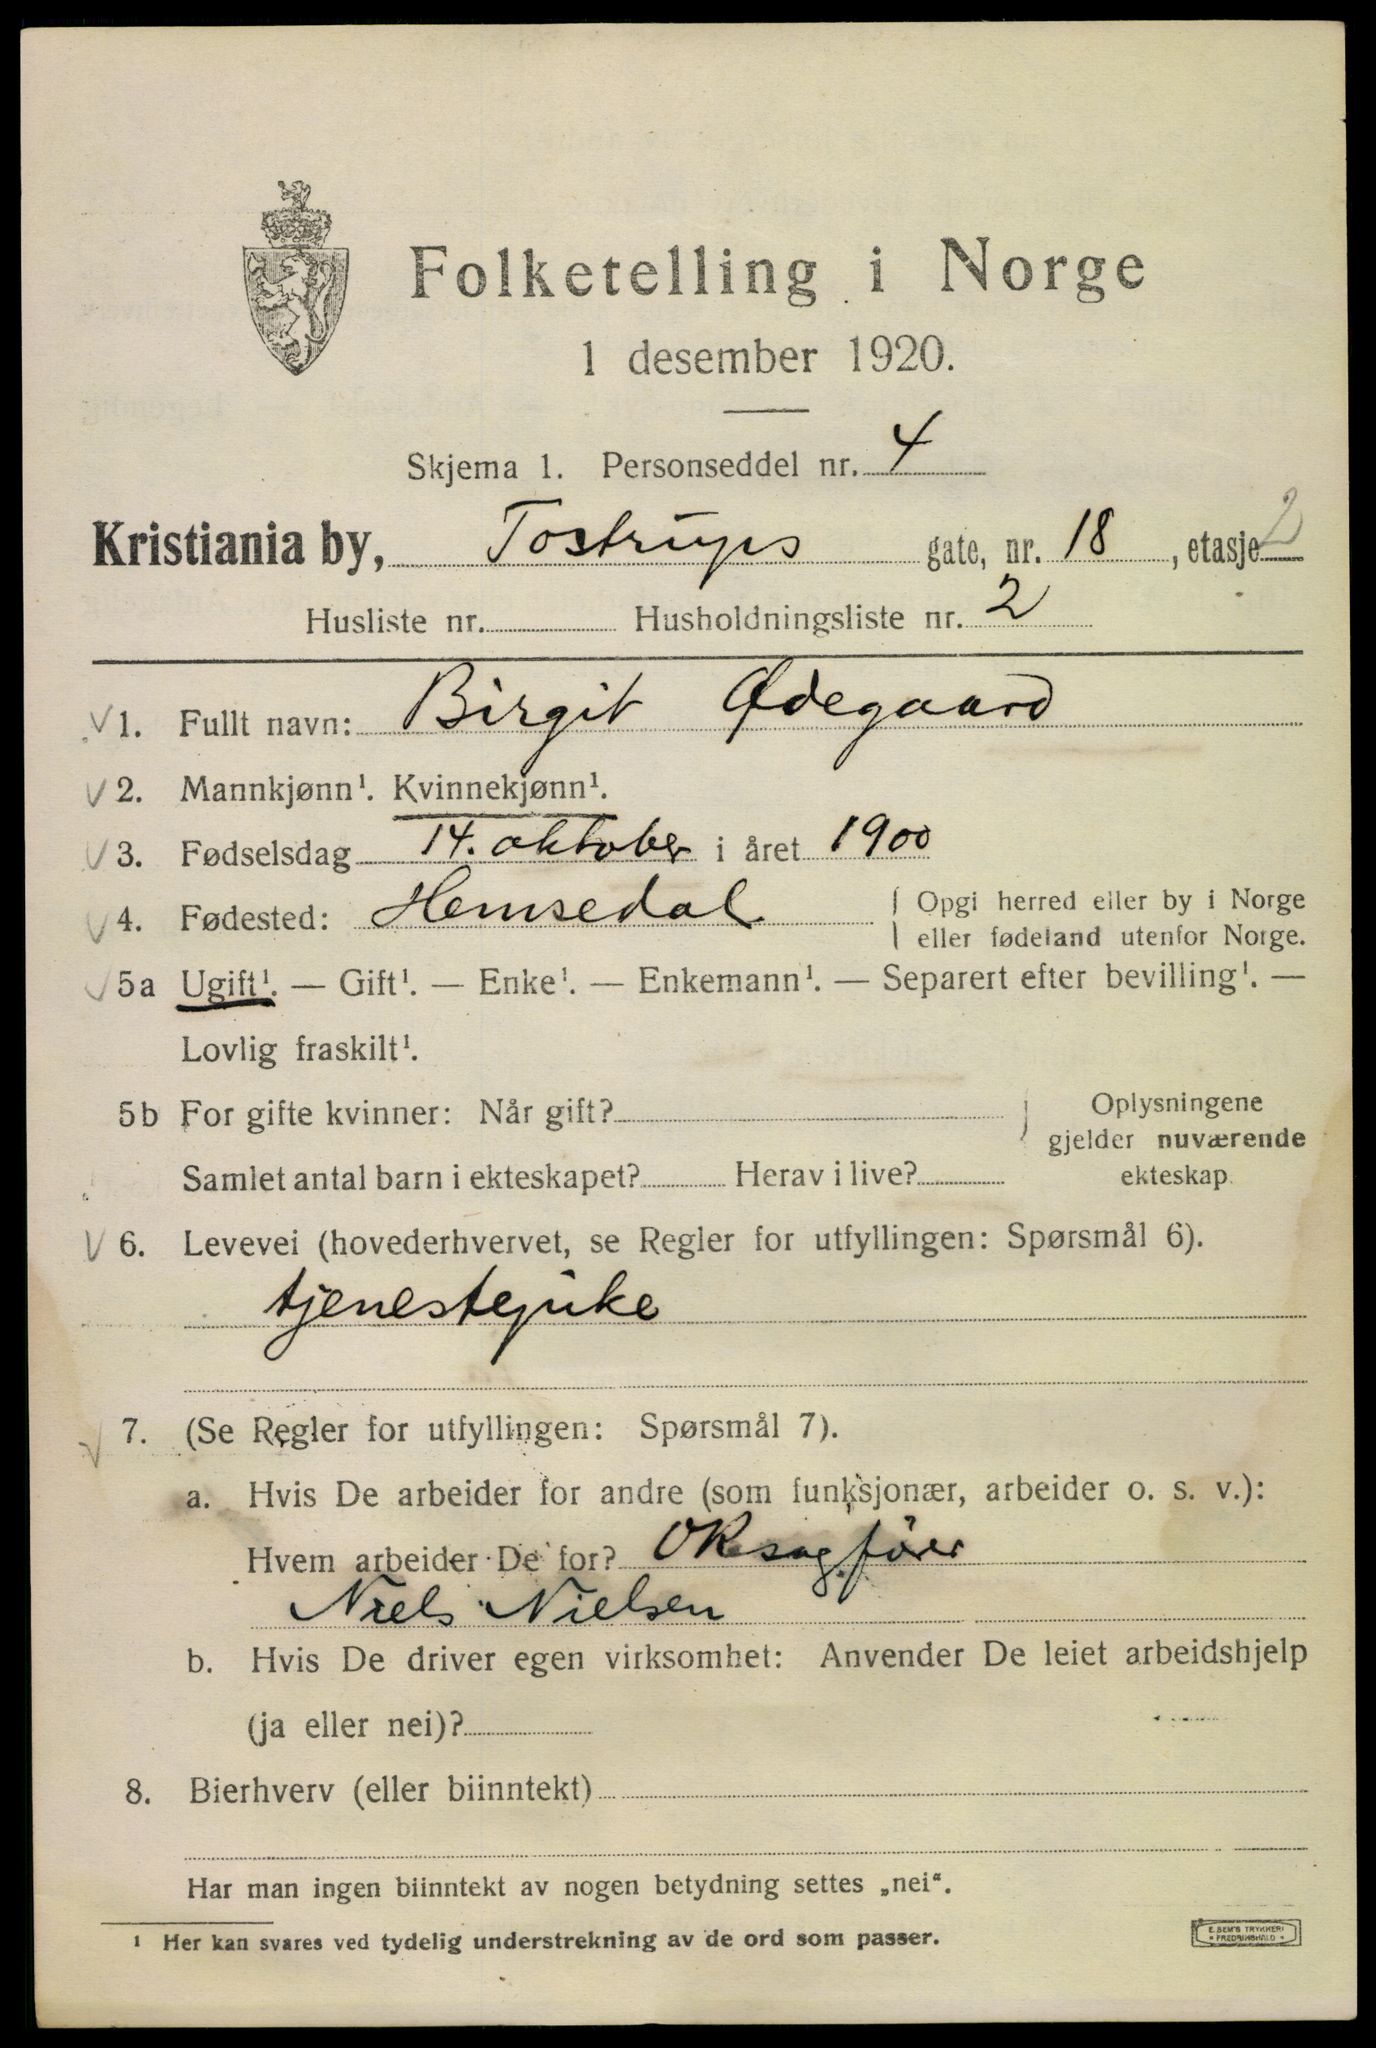 Folketelling i Norge
1 desember 1920.
Skjema 1. Personseddel nr. 4
Kristiania by, Tostrups gate, nr. 18, etasje 2
Husliste nr. Husholdningsliste nr. 2
1. Fullt navn: Birgit Ødegaard
2. Mannkjønn¹. Kvinnekjønn¹.
3. Fødselsdag 14. oktober i året 1900
4. Fødested: Hemsedal Opgi herred eller by i Norge
eller fødeland utenfor Norge.
5a Ugift¹. — Gift¹. — Enke¹. — Enkemann¹. — Separert efter bevilling¹. —
Lovlig fraskilt¹.
5b For gifte kvinner: Når gift? Oplysningene
gjelder nuværende
Samlet antal barn i ekteskapet? Herav i live? ekteskap
6. Levevei (hovederhvervet, se Regler for utfyllingen: Spørsmål 6).
tjenestepike
7. (Se Regler for utfyllingen: Spørsmål 7).
a. Hvis De arbeider for andre (som funksjonær, arbeider o. s. v.):
Hvem arbeider De for? ORsagfører
Niels Nielsen
b. Hvis De driver egen virksomhet: Anvender De leiet arbeidshjelp
(ja eller nei)?
8. Bierhverv (eller biinntekt)
Har man ingen biinntekt av nogen betydning settes „nei“.
¹ Her kan svares ved tydelig understrekning av de ord som passer.
E. SEM'S TRYKKERI
FREDRIKSHALD